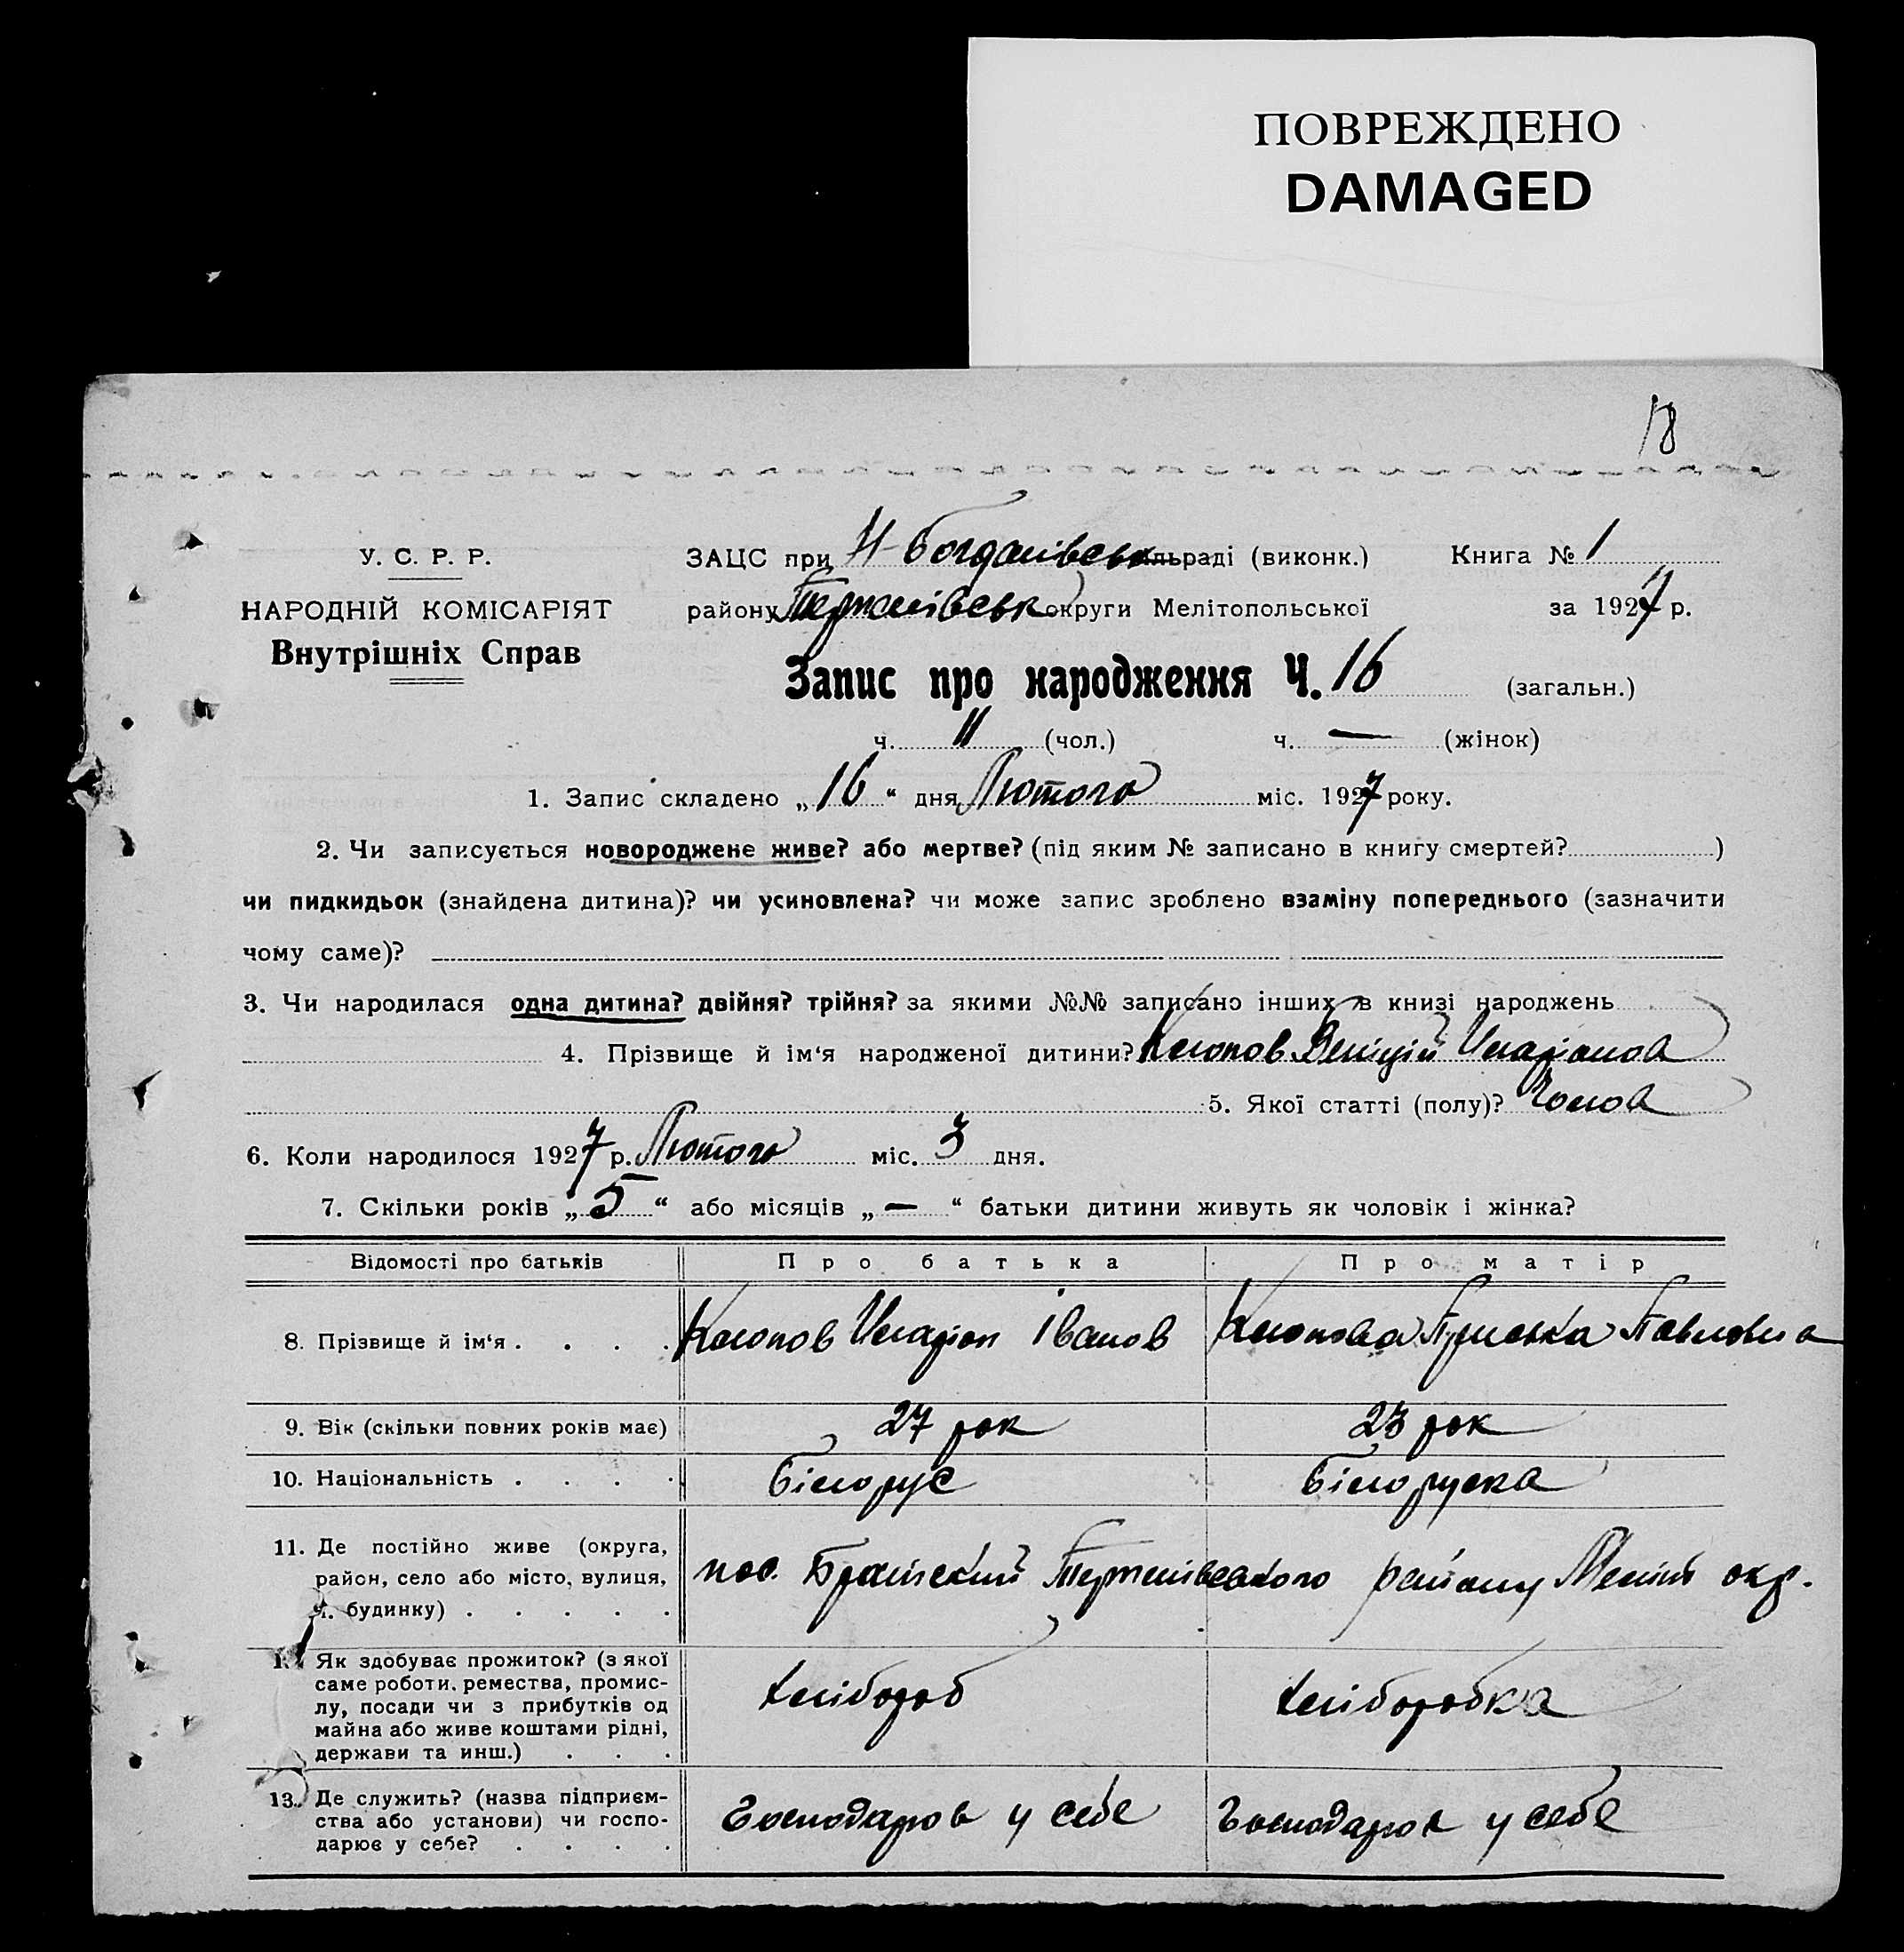 ПОВРЕЖДЕНО
DAMAGED
18
У. С. Р. Р.
НАРОДНІЙ КОМІСАРІЯТ
Внутрішніх Справ
ЗАЦС при Н-Богданівськ сільраді (виконк.) Книга № 1
району округи Мелітопольської за 1927 р.
Запис про народження Ч. 16 (загальн.)
ч. 11 (чол.) ч. — (жінок)
1. Запис складено „16“ дня Лютого міс. 1927 року.
2. Чи записується новороджене живе? або мертве? (під яким № записано в книгу смертей? )
чи пидкидьок (знайдена дитина)? чи усиновлена? чи може запис зроблено взаміну попереднього (зазначити
чому саме)?
3. Чи народилася одна дитина? двійня? трійня? за якими №№ записано інших в книзі народжень
4. Прізвище й ім‘я народженої дитини?
5. Якої статті (полу)? Чолов
6. Коли народилося 1927 р. Лютого міс. 3 дня.
7. Скільки років „5“ або місяців „—“ батьки дитини живуть як чоловік і жінка?
Відомості про батьків Про батька Про матір
8. Прізвище й ім‘я . . . . Клопов Іларіон Іванов Клопова Пріська Павловна
9. Вік (скільки повних років має) 27 рок 23 рок
10. Національність . . . . Білорус Білоруска
11. Де постійно живе (округа,
район, село або місто, вулиця,
ч. будинку) . . . . . пос. району Меліт окр.
Як здобуває прожиток? (з якої
саме роботи, ремества, промис-
лу, посади чи з прибутків од
майна або живе коштами рідні,
держави та инш.) . . . хлібороб хліборобка
13. Де служить? (назва підприєм-
ства або установи) чи госпо-
дарює у себе? . . . . Господарює у себе Господарює у себе